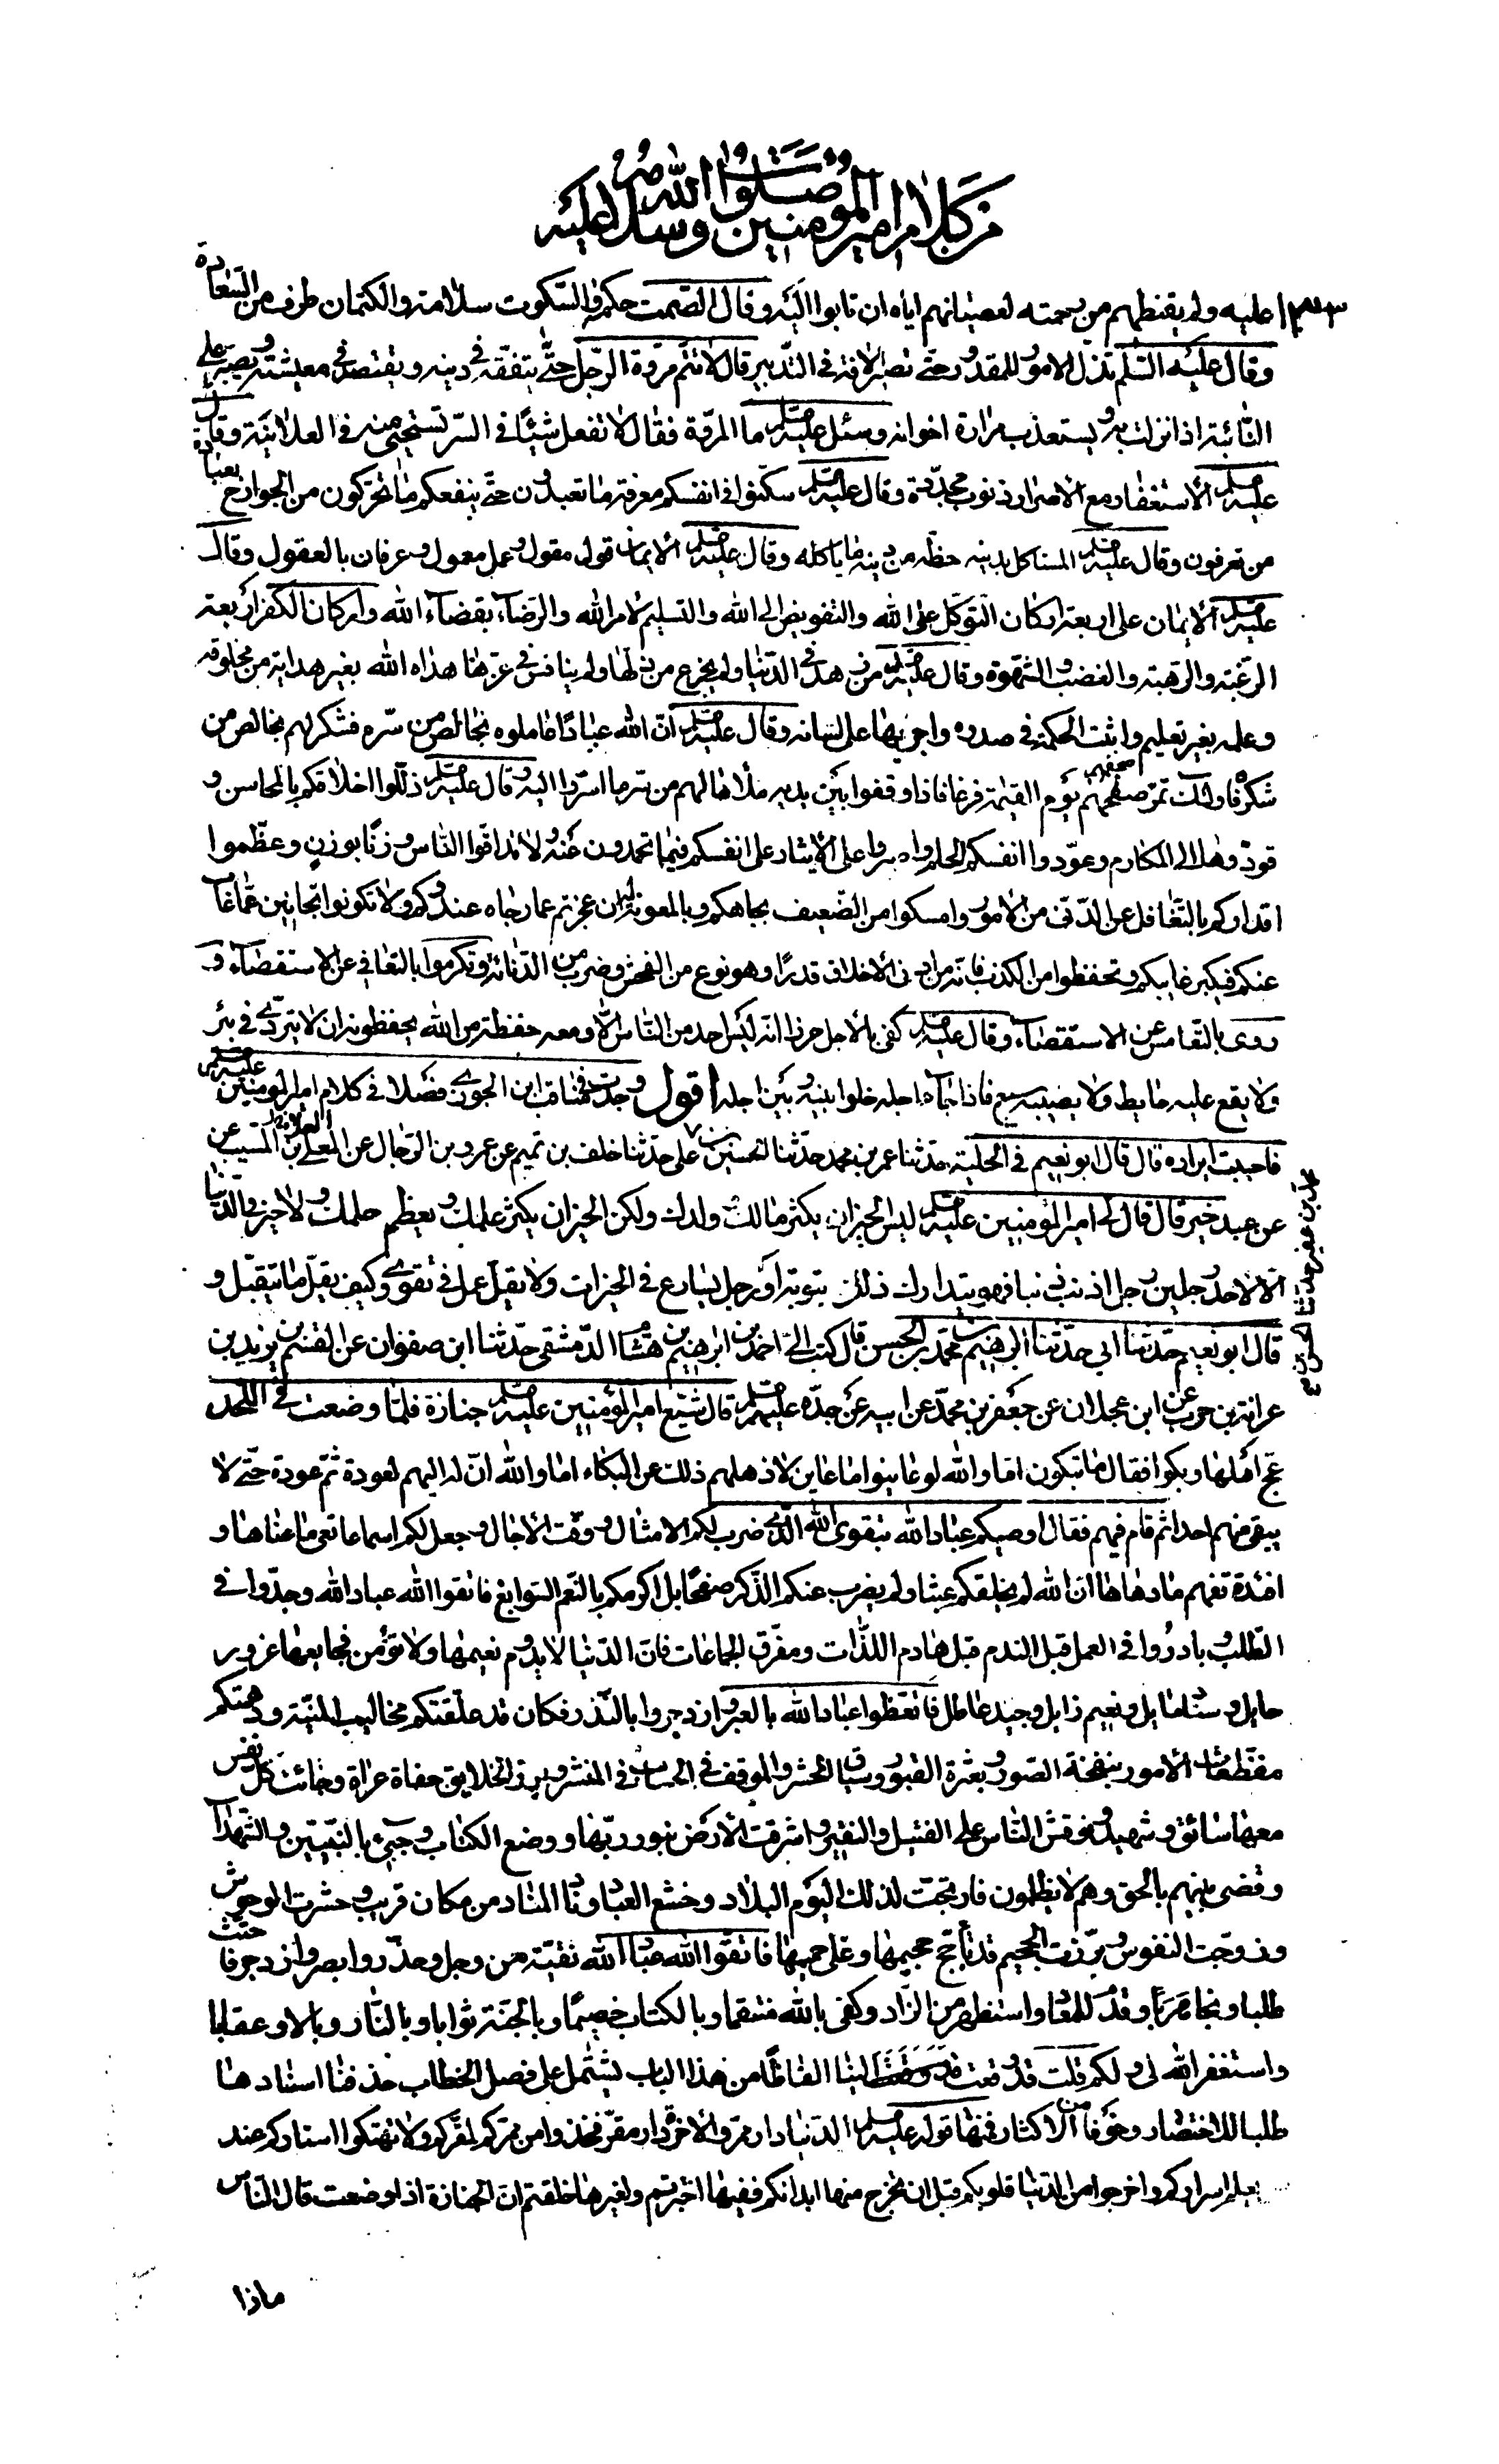 من كلام امير المؤمنين صلوات الله وسلامه عليه
عليه ولم يقنطهم من رحمته لعصيانهم اياه ان تابوا اليه وقال الصمت حكم والسكوت سلامة والكتمان طرف من السعادة
وقال عليه السلم تذل الامور للمقدور حتى تصير الافة في التدبير قال لا تتم مروة الرجل حتى يتفقه في دينه ويقتصد في معيشته ويصبر على
النائبة اذا نزلت به ويستعذب مرارة اخوانه وسئل عليه السلم ما المروة فقال لا تفعل شيئا في السر تستحيي منه في العلانية وقال
عليه السلم الاستغفار مع الاصرار ذنوب مجددة وقال عليه السلم سكنوا في انفسكم معرفة ما تعبدون حتى ينفعكم ما تحركون من الجوارح بعبادة
من تعرفون وقال عليه السلم المستاكل بدينه حظه من دينه ما ياكله وقال عليه السلم الايمان قول مقول وعمل معمول وعرفان بالعقول وقال
عليه السلم الايمان على اربعة اركان التوكل على الله والتفويض الى الله والتسليم لامر الله والرضاء بقضاء الله واركان الكفر اربعة
الرغبة والرهبة والغضب والشهوة وقال عليه السلم من زهد في الدنيا ولم يجزع من ذلها ولم ينافس في عزها هداه الله بغير هداية من مخلوقه
وعلمه بغير تعليم واثبت الحكمة في صدره واجريها على لسانه وقال عليه السلم ان الله عبادا عاملوه بخالص من سره فشكر لهم بخالص من
شكره فاولئك تمر صحفهم يوم القيمة فرغا فاذا وقفوا بين يديه ملأها لهم من سر ما اسروا اليه وقال عليه السلم ذللوا اخلاقكم بالمحاسن و
قودوها الى المكارم وعودوا انفسكم الحلم واصبروا على الايثار على انفسكم فيما تحمدون عنه ولا تداقوا الناس وزنا بوزن وعظموا
اقداركم بالتغافل عن الدني من الامور وامسكوا رمق الضعيف بجاهكم وبالمعونة له ان عجزتم عما رجاه عندكم ولا تكونوا بحاثين عما غاب
عنكم فيكبر عايبكم وتحفظوا من الكذب فانه من ادنى الاخلاق قدرا وهو نوع من الفحش وضرب من الدنائة وتكرموا بالتعافي عن الاستقصاء و
روى بالتعامس عن الاستقصاء وقال عليه السلم كفى بالاجل حرزا انه ليس احد من الناس الا ومعه حفظة من الله يحفظونه ان لا يتردى في بئر
ولا يقع عليه حايط ولا يصيبه سبع فاذا جاء اجله خلوا بينه وبين اجله اقول وجدت في مناقب ابن الجوزي فصلا في كلام امير المؤمنين عليه السلم
فاحببت ايراده قال قال ابو نعيم في الحلية حدثنا عمر بن محمد حدثنا الحسين بن علي حدثنا خلف بن تميم عن عمرو بن الرحال عن العلاء بن المسيب عن
عن عبد خير قال قال لي امير المؤمنين عليه السلم ليس الخير ان يكثر مالك وولدك ولكن الخير ان يكثر علمك ويعظم حلمك ولا خير في الدنيا
الا لاحد رجلين رجل اذنب ذنبا فهو يتدارك ذلك بتوبة او رجل يسارع في الخيرات ولا يقل عمل في تقوى وكيف يقل ما يتقبل و
قال ابو نعيم حدثنا ابي حدثنا ابرهيم بن محمد بن الحسن قال كتب الى احمد بن ابرهيم بن هشام الدمشقي حدثنا ابن صفوان عن القسم بن يزيد بن
عوانة بن حرب عن ابن عجلان عن جعفر بن محمد عن ابيه عن جده عليهم السلم قال شيع امير المؤمنين عليه السلم جنازة فلما وضعت في اللحد
عج اهلها وبكوا فقال ما تبكون اما والله لو عاينوا ما عاين لاذهلهم ذلك عن البكاء اما والله ان له اليهم لعودة ثم عودة حتى لا
يبقى منهم احدا ثم قام فيهم فقال اوصيكم عباد الله بتقوى الله الذي ضرب لكم الامثال ووقت الاجال وجعل لكم اسماعا تعي ما عناها و
افئدة تفهم ما دهاها ان الله لم يخلقكم عبثا ولم يضرب عنكم الذكر صفحا بل اكرمكم بالنعم السوابغ فاتقوا الله عباد الله وجدوا في
الطلب وبادروا في العمل قبل الندم قبل هادم اللذات ومفرق الجماعات فان الدنيا لا يدوم نعيمها ولا تؤمن فجايعها غرور
حايل وسناد مايل ونعيم زايل وجيد عاطل فاتعظوا عباد الله بالعبر وازدجروا بالنذر فكان قد علقتكم مخاليب المنية ودهمتكم
مفظعات الامور بنفخة الصور وبعثرة القبور وسياق المحشر والموقف في الحساب في المنشر وبرز الخلايق حفاة عراة وجائت كل نفس
معها سائق وشهيد ونوقش الناس على الفتيل والنقير واشرقت الارض بنور ربها ووضع الكتاب وجيىء بالنبيين والشهداء
وقضى بينهم بالحق وهم لا يظلمون فارتجت لذلك اليوم البلاد وخشع العباد وناد المناد من مكان قريب وحشرت الوحوش
وزوجت النفوس وبرزت الجحيم قد تأجج جحيمها وغلى حميمها فاتقوا الله عباد الله تقية من وجل وحذر وابصر وازدجر فاحتث
طلبا ونجا هربا وقدم للمعاد واستظهر من الزاد وكفى بالله منتقما وبالكتاب خصيما وبالجنة ثوابا وبالنار وبالا وعقابا
واستغفر الله لي ولكم قلت قد وقعت الينا الفاظا من هذا الباب يشتمل على فصل الخطاب حذفنا اسنادها
طلبا للاختصار وخوفا من الاكثار فمنها قوله عليه السلم الدنيا دار ممر والاخرة دار مقر فخذوا من ممركم لمقركم ولا تهتكوا استاركم عند
يعلم اسراركم واخرجوا من الدنيا قلوبكم قبل ان تخرج منها ابدانكم ففيها اختبرتم ولغيرها خلقتم ان الجنازة اذا وضعت قال الناس
ماذا